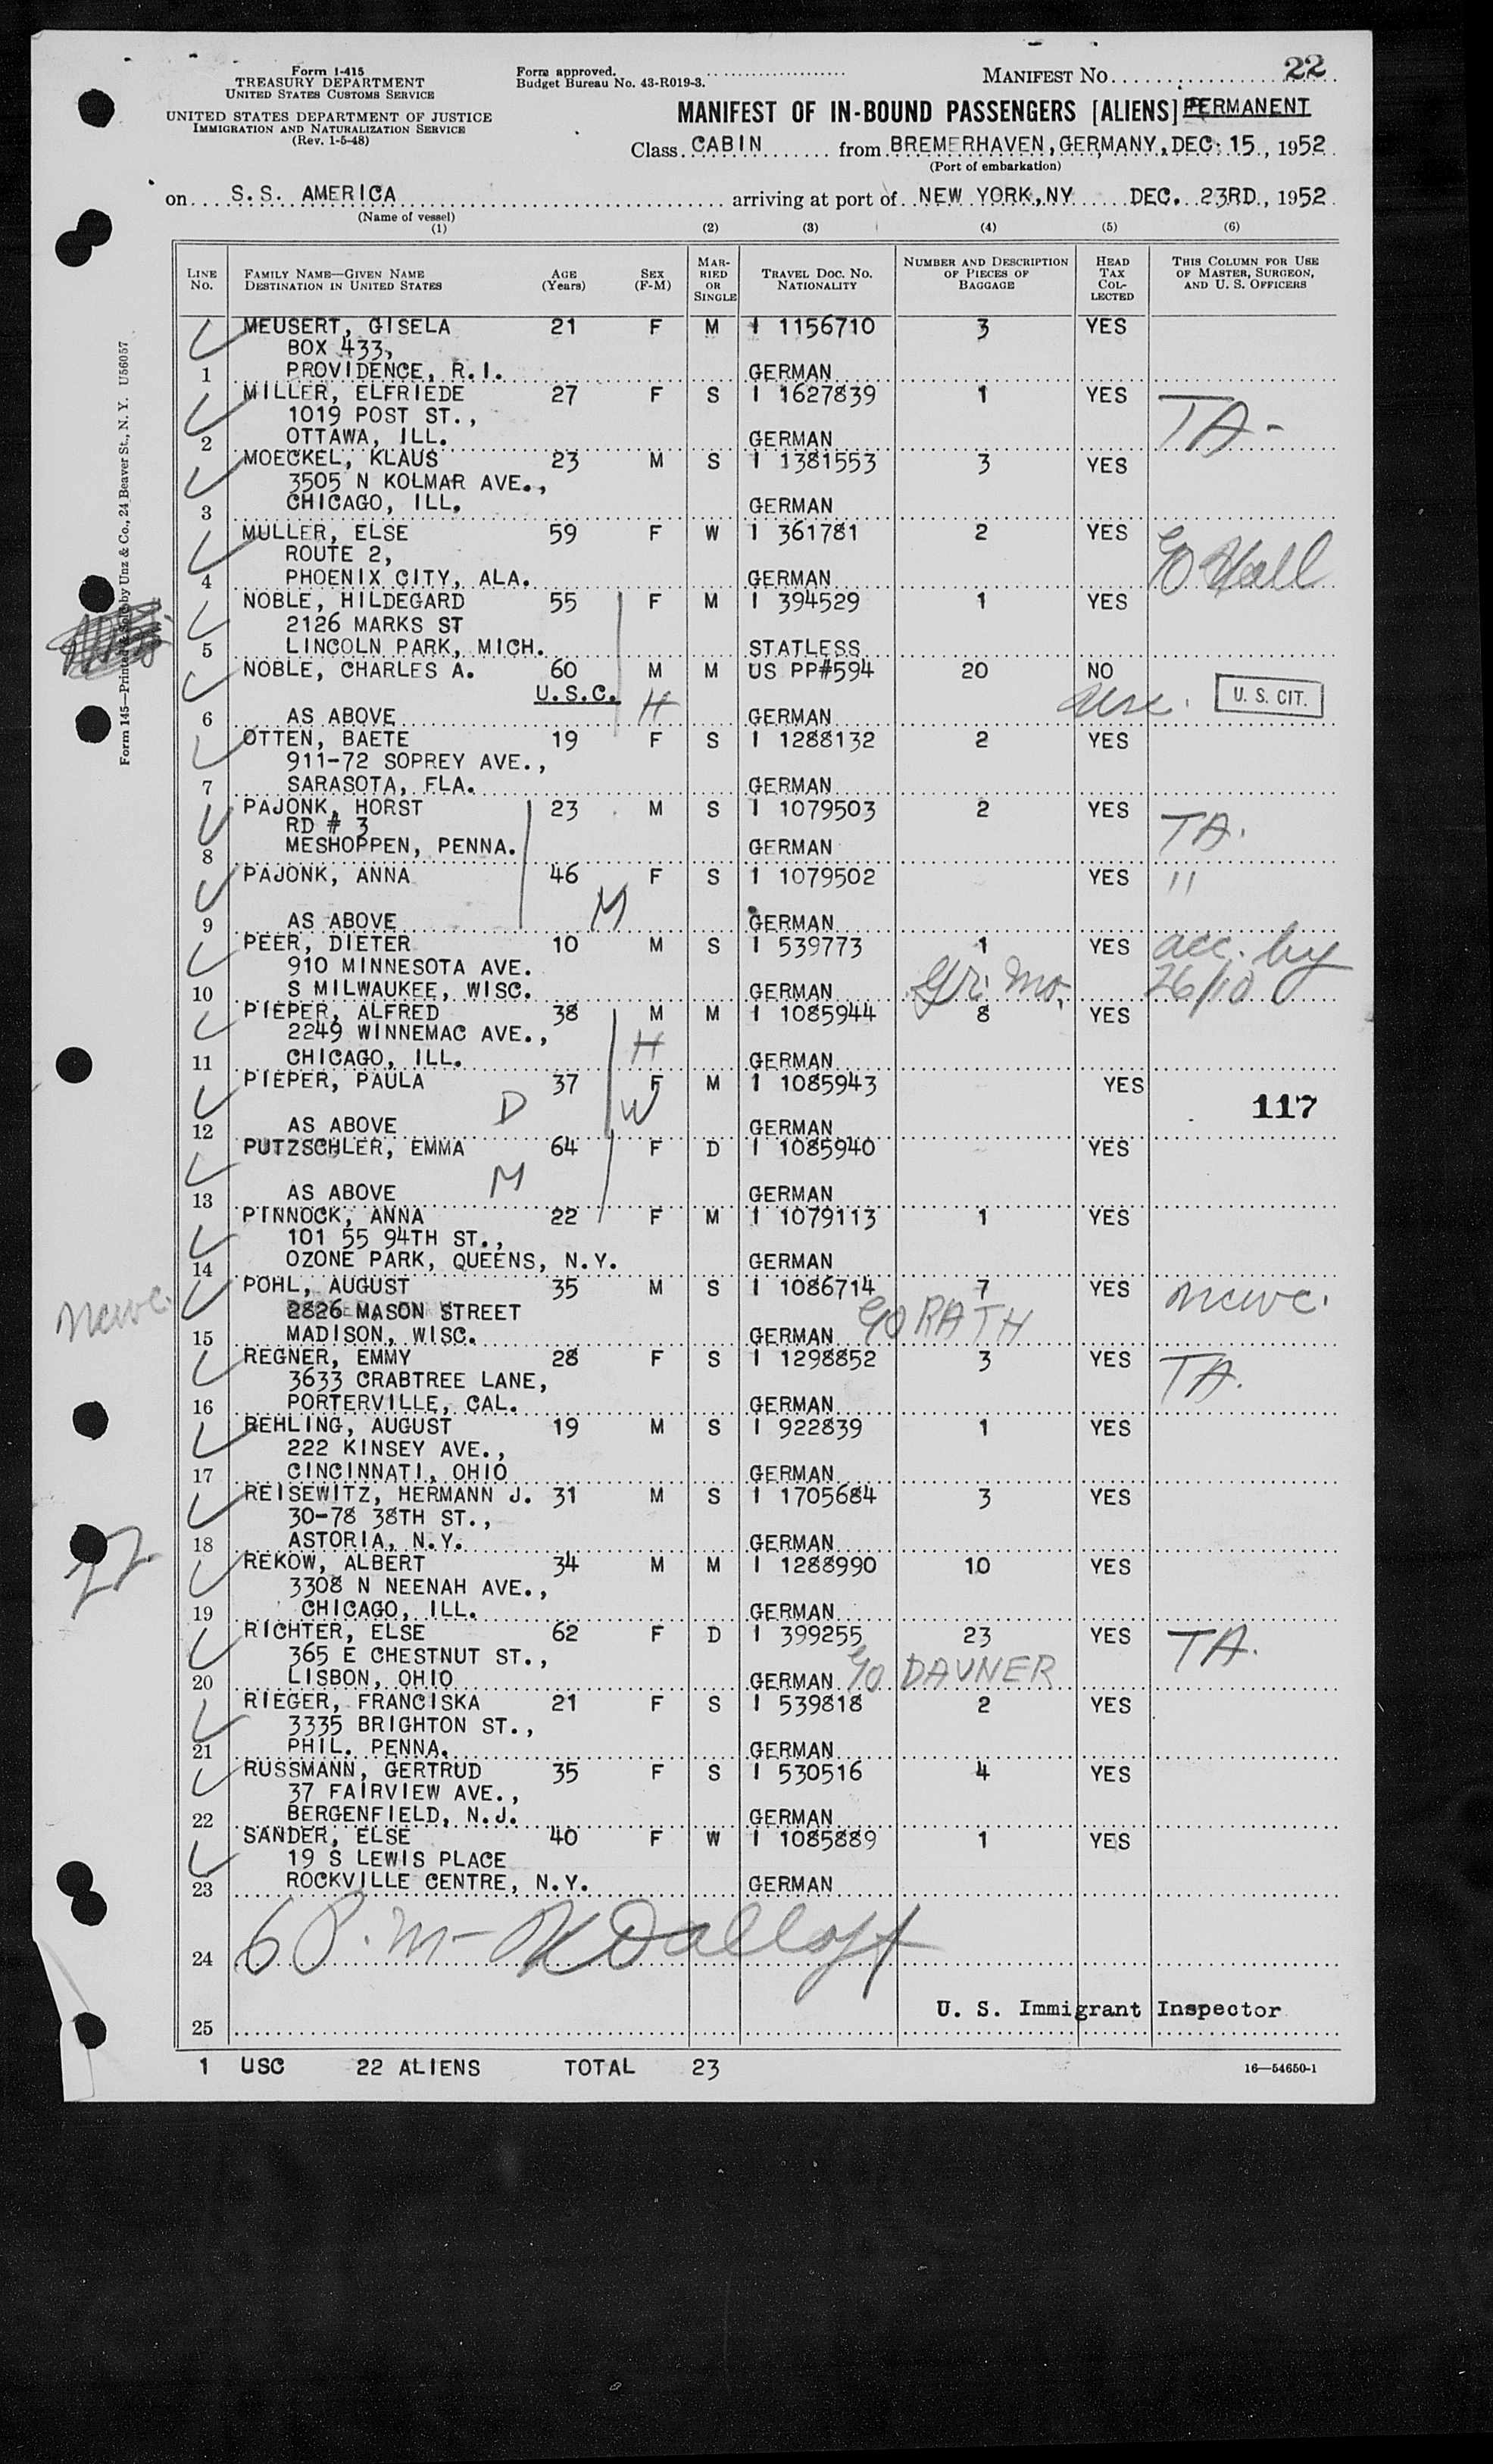 Form I-415
TREASURY DEPARTMENT
UNITED STATES CUSTOMS SERVICE
UNITED STATES DEPARTMENT OF JUSTICE
IMMIGRATION AND NATURALIZATION SERVICE
(Rev. 1-5-48)
Form approved.
Budget Bureau No. 43-R019-3.
MANIFEST No. 22
MANIFEST OF IN-BOUND PASSENGERS [ALIENS] PERMANENT
Class CABIN from BREMERHAVEN, GERMANY, DEC. 15, 1952
(Port of embarkation)
on S.S. AMERICA arriving at port of NEW YORK, NY DEC. 23RD, 1952
(Name of vessel)
(1) (2) (3) (4) (5) (6)
LINE No. FAMILY NAME—GIVEN NAME DESTINATION IN UNITED STATES AGE (Years) SEX (F-M) MARRIED OR SINGLE TRAVEL DOC. NO. NATIONALITY NUMBER AND DESCRIPTION OF PIECES OF BAGGAGE HEAD TAX COLLECTED THIS COLUMN FOR USE OF MASTER, SURGEON, AND U. S. OFFICERS
MEUSERT, GISELA 21 F M I 1156710 3 YES
BOX 433,
1 PROVIDENCE, R.I. GERMAN
MILLER, ELFRIEDE 27 F S I 1627839 1 YES
1019 POST ST., TA-
2 OTTAWA, ILL. GERMAN
MOECKEL, KLAUS 23 M S I 1381553 3 YES
3505 N KOLMAR AVE.,
3 CHICAGO, ILL. GERMAN
MULLER, ELSE 59 F W I 361781 2 YES
ROUTE 2, c/o Hall
4 PHOENIX CITY, ALA. GERMAN
NOBLE, HILDEGARD 55 F M I 394529 1 YES
2126 MARKS ST
5 LINCOLN PARK, MICH. STATLESS
NOBLE, CHARLES A. 60 M M US PP#594 20 NO
U.S.C. H usc. U. S. CIT.
6 AS ABOVE GERMAN
OTTEN, BAETE 19 F S I 1288132 2 YES
911-72 SOPREY AVE.,
7 SARASOTA, FLA. GERMAN
PAJONK, HORST 23 M S I 1079503 2 YES
RD # 3 TA.
8 MESHOPPEN, PENNA. GERMAN
PAJONK, ANNA 46 F S I 1079502 YES "
M
9 AS ABOVE GERMAN
PEER, DIETER 10 M S I 539773 1 YES acc. by
910 MINNESOTA AVE. Gr. Mo. 26/10
10 S MILWAUKEE, WISC. GERMAN
PIEPER, ALFRED 38 M M I 1085944 8 YES
2249 WINNEMAC AVE., H
11 CHICAGO, ILL. GERMAN
PIEPER, PAULA 37 F M I 1085943 YES
D W 117
12 AS ABOVE GERMAN
PUTZSCHLER, EMMA 64 F D I 1085940 YES
M
13 AS ABOVE GERMAN
PINNOCK, ANNA 22 F M I 1079113 1 YES
101 55 94TH ST.,
14 OZONE PARK, QUEENS, N.Y. GERMAN
POHL, AUGUST 35 M S I 1086714 7 YES ncwc.
ncwc. 2826 MASON STREET c/o RATH
15 MADISON, WISC. GERMAN
REGNER, EMMY 28 F S I 1298852 3 YES
3633 CRABTREE LANE, TA.
16 PORTERVILLE, CAL. GERMAN
REHLING, AUGUST 19 M S I 922839 1 YES
222 KINSEY AVE.,
17 CINCINNATI, OHIO GERMAN
REISEWITZ, HERMANN J. 31 M S I 1705684 3 YES
30-78 38TH ST.,
18 ASTORIA, N.Y. GERMAN
22
REKOW, ALBERT 34 M M I 1288990 10 YES
3308 N NEENAH AVE.,
19 CHICAGO, ILL. GERMAN
RICHTER, ELSE 62 F D I 399255 23 YES TA.
365 E CHESTNUT ST.,
20 LISBON, OHIO GERMAN c/o DAUNER
RIEGER, FRANCISKA 21 F S I 539818 2 YES
3335 BRIGHTON ST.,
21 PHIL. PENNA. GERMAN
RUSSMANN, GERTRUD 35 F S I 530516 4 YES
37 FAIRVIEW AVE.,
22 BERGENFIELD, N.J. GERMAN
SANDER, ELSE 40 F W I 1085889 1 YES
19 S LEWIS PLACE
23 ROCKVILLE CENTRE, N.Y. GERMAN
24 6 P.M-
U. S. Immigrant Inspector
25
1 USC 22 ALIENS TOTAL 23
16—54650-1
Form 145—Printed & Sold by Unz & Co., 24 Beaver St., N. Y. U56057